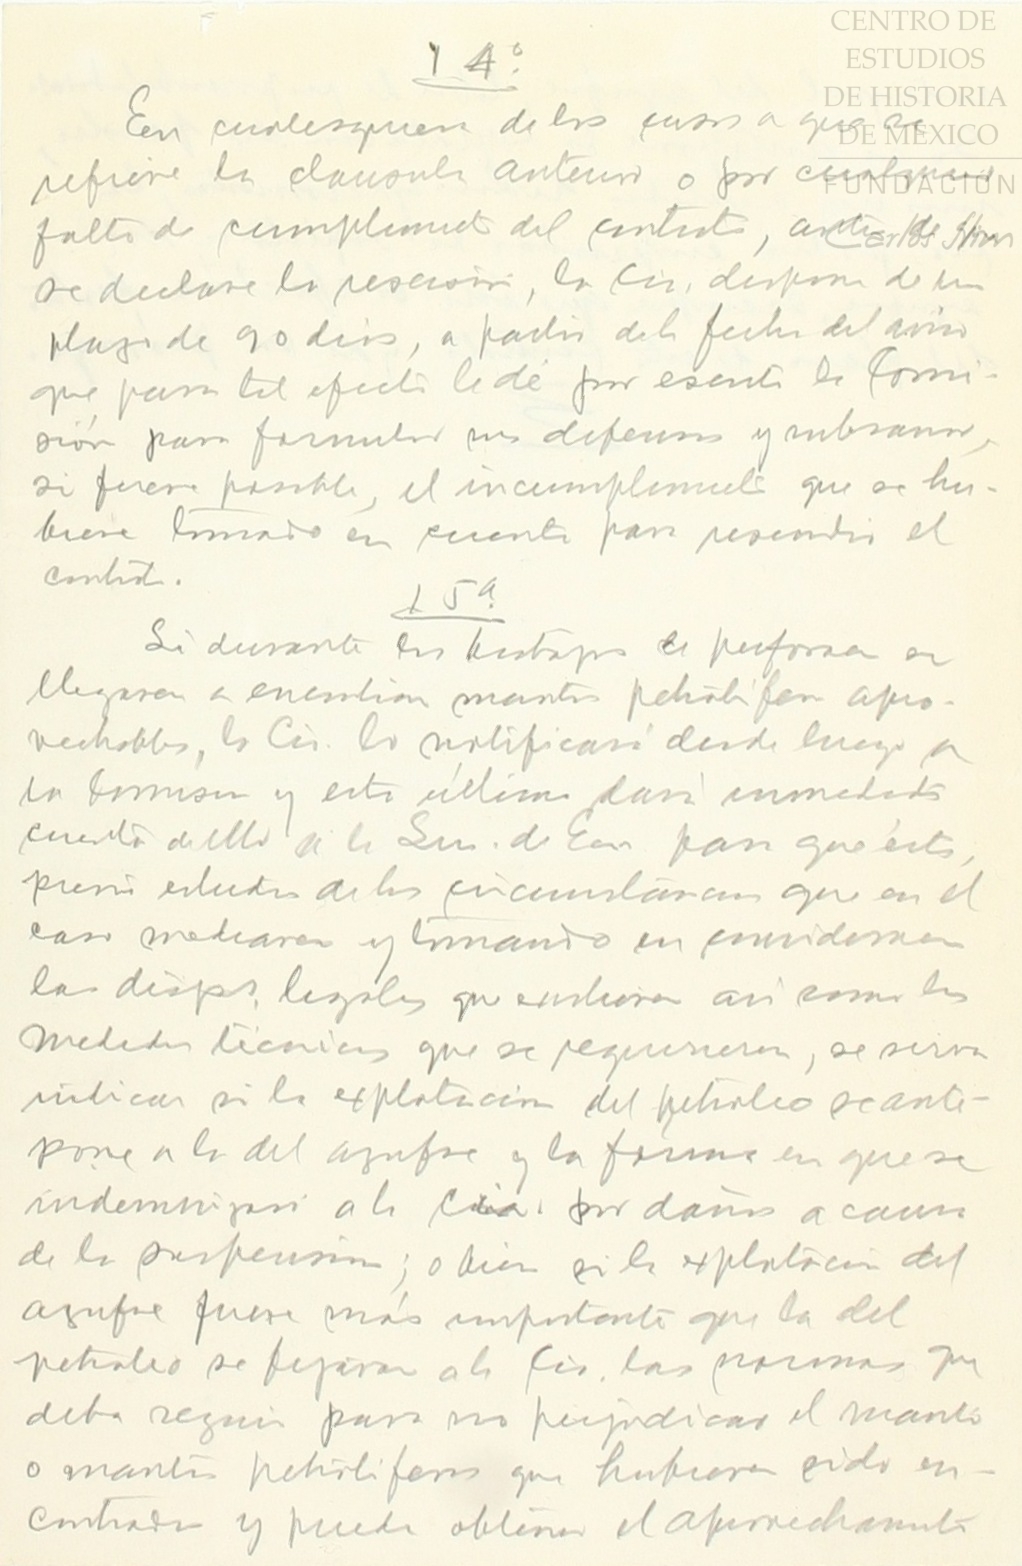 CENTRO DE
ESTUDIOS
DE HISTORIA
DE MÉXICO
FUNDACIÓN
Carlos Slim
14ª
En cualesquiera de los casos a que se
refiere la clausula anterior o por cualquier
falta de cumplimiento del contrato, antes de que
se declare la rescisión, la Cia. dispone de un
plazo de 90 dias, a partir de la fecha del aviso
que para tal efecto le dé por escrito la Comi-
sión para formular sus defensas y subsanar,
si fuere posible, el incumplimiento que se hu-
biere tomado en cuenta para rescindir el
contrato.
15ª
Si durante los trabajos de perforacion se
llegaran a encontrar mantos petroliferos apro-
vechables, la Cia. lo notificará desde luego a
la Comision y esta última dará inmediata
cuenta de ello a la Sria. de Econ para que ésta,
previo estudio de las circunstancias que en el
caso mediaren y tomando en consideracion
las disps. legales que existieren asi como las
medidas técnicas que se requirieren, se sirva
indicar si la explotación del petróleo se ante-
pone a la del azufre y la forma en que se
indemnizará a la Cia. por daños a causa
de la suspensión; o bien si la explotación del
azufre fuere más importante que la del
petroleo se fijaran a la Cia. las normas que
deba seguir para no perjudicar el manto
o mantos petroliferos que hubieren sido en-
contrados y pueda obtener el aprovechamiento